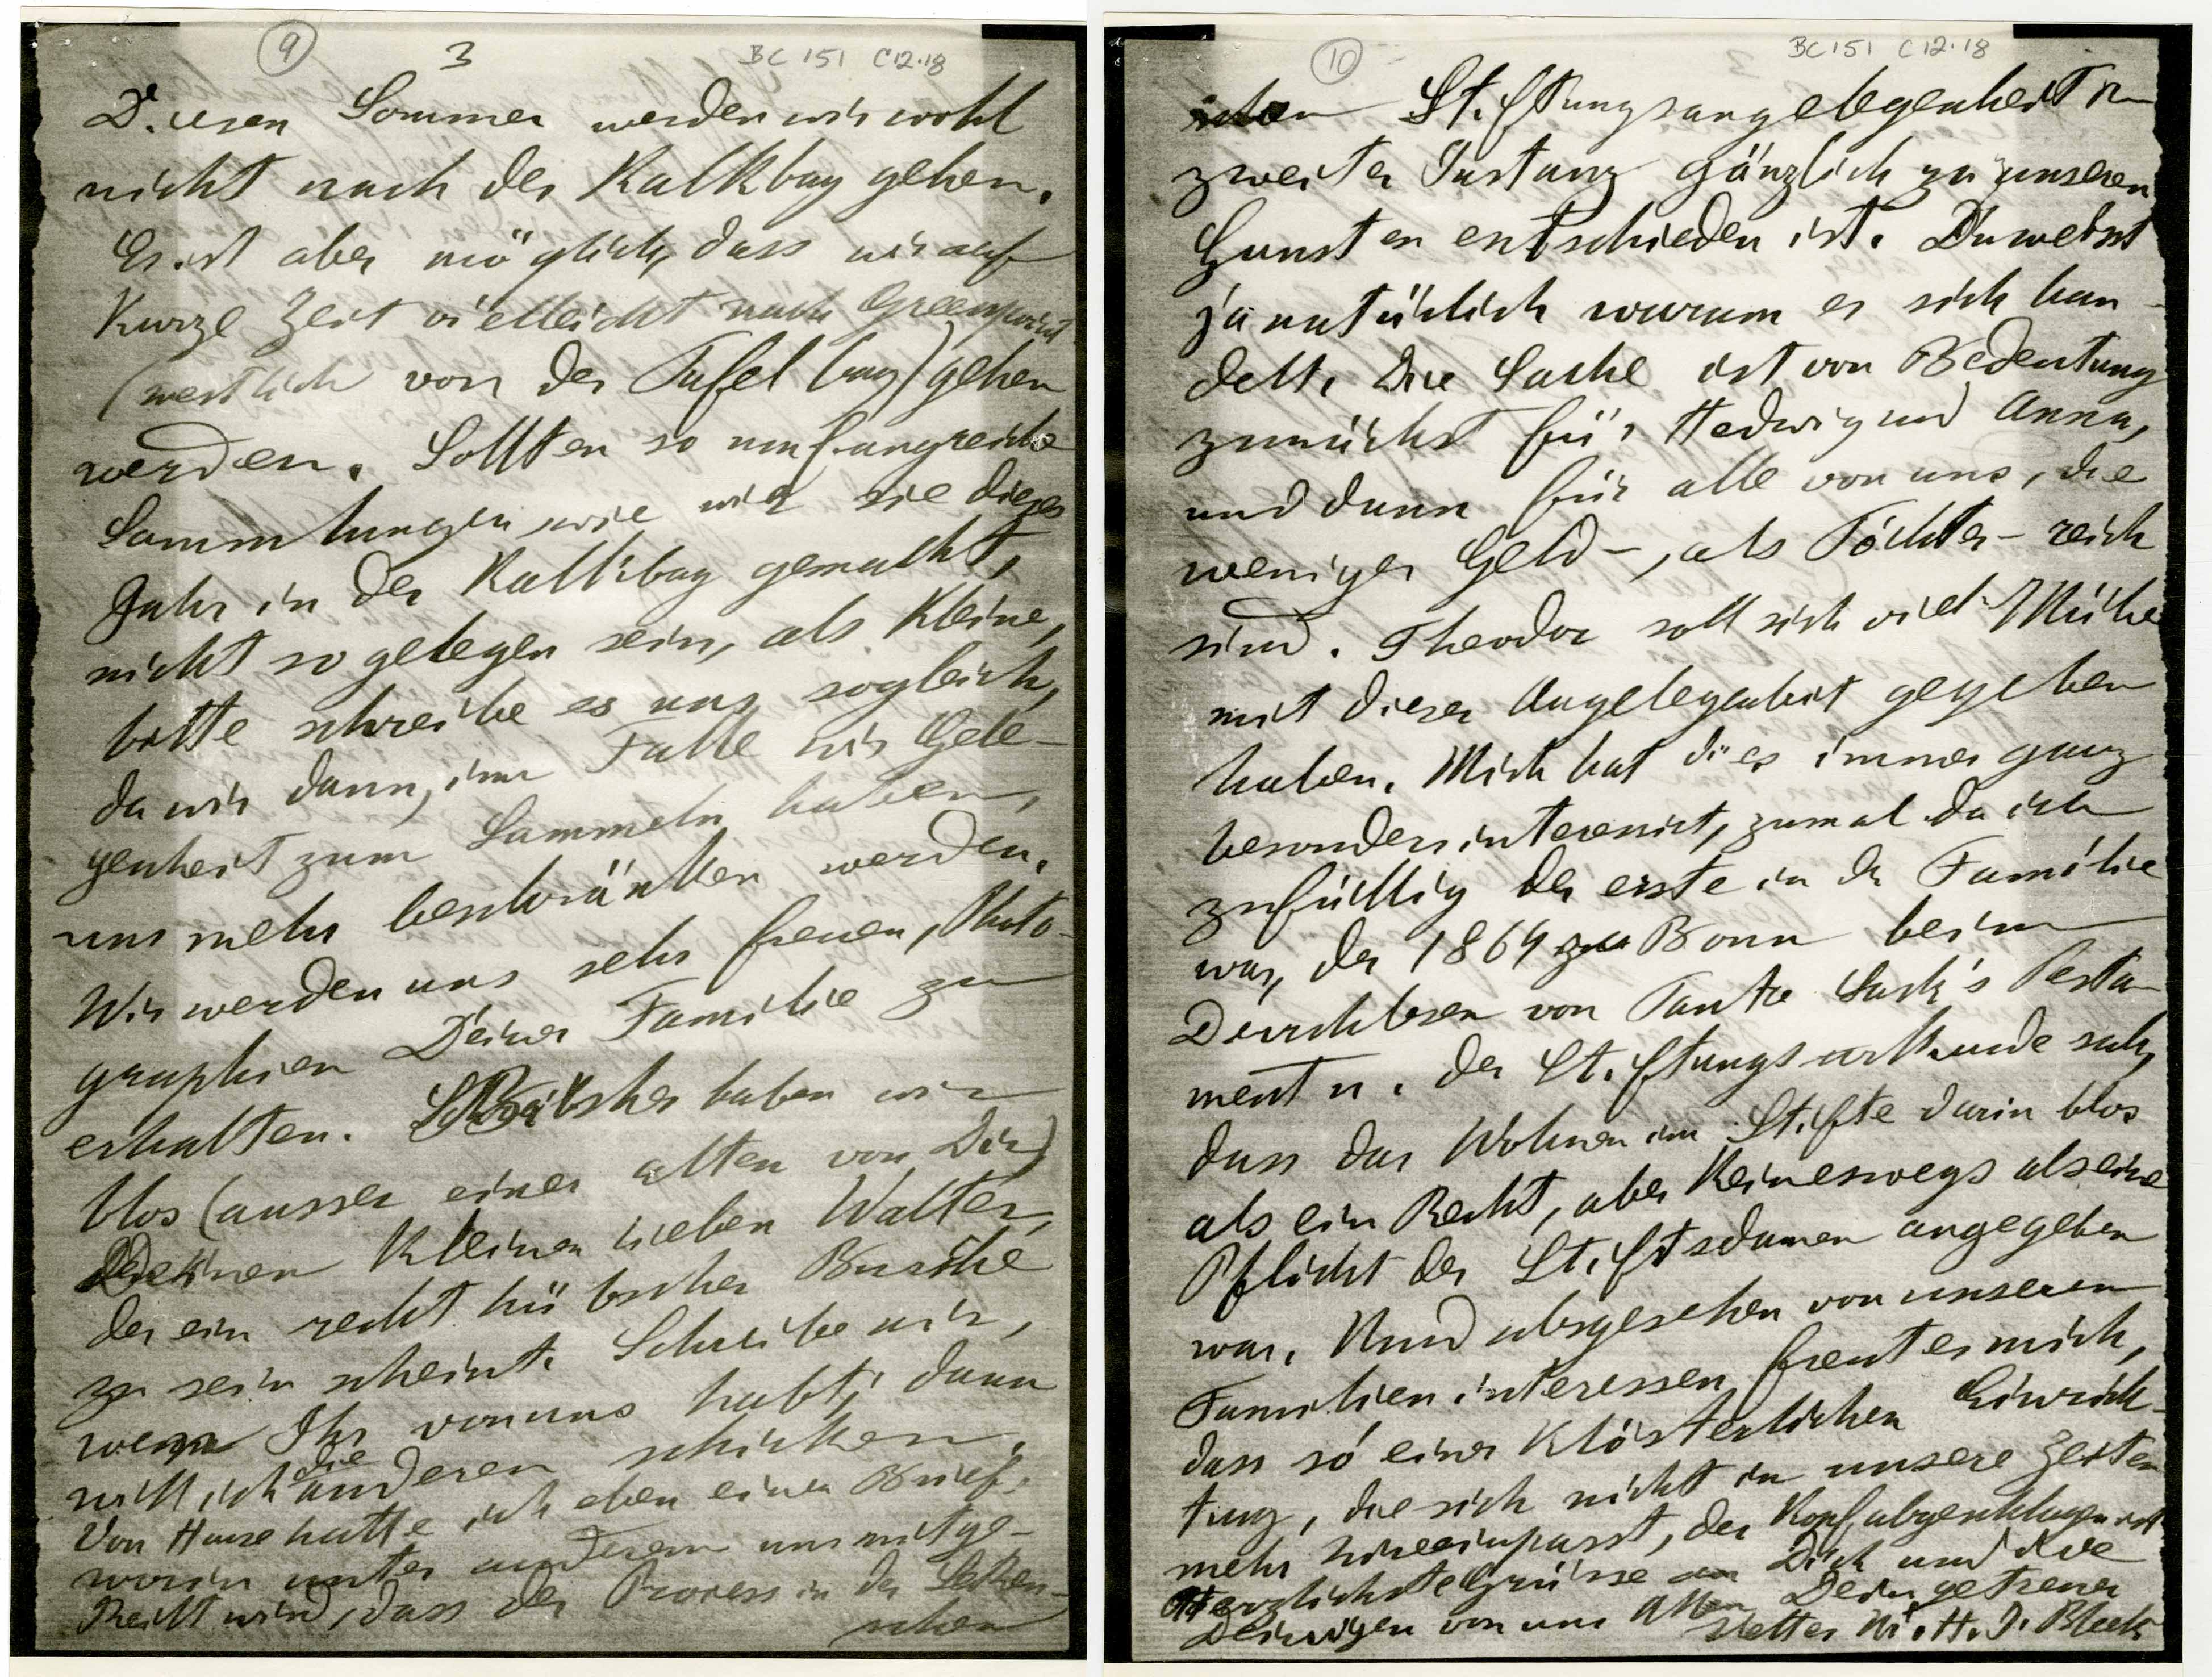 9 3 BC 151 C12.18
Diesen Sommer werden wir wohl
nicht nach der Kalkbay gehen.
Es ist aber möglich, dass wir auf
kurze Zeit vielleicht nach Greenpoint
(westlich von der Tafelbay) gehen
werden. Sollten so umfangreiche
Sammlungen, wie wir sie dieses
Jahr in der Kalkbay gemacht,
nicht so gelegen sein, als kleine,
bitte schreibe es uns sogleich,
da wir dann, im Falle wir Gele-
genheit zum Sammeln haben,
uns mehr beschränken werden.
Wir werden uns sehr freuen, Photo-
graphien Deiner Familie zu
erhalten. Bisher haben wir
blos (ausser einer alten von Dir)
Deinen kleinen lieben Walter,
der ein recht hübscher Bursche
zu sein scheint. Schreibe mir,
wenn Ihr von uns habt; dann
will ich die anderen schicken.
Von Hause hatte ich eben einen Brief,
worin unter anderem uns mitge-
theilt wird, dass der Process in der
schen
10 BC 151 C12.18
schen Stiftungsangelegenheit in
zweiter Instanz gänzlich zu unseren
Gunsten entschieden ist. Du weisst
ja natürlich warum es sich han-
delt. Die Sache ist von Bedeutung
zunächst für Hedwig und Anna,
und dann für alle von uns, die
weniger Geld-, als Töchter-reich
sind. Theodor soll sich viel Mühe
mit dieser Angelegenheit gegeben
haben. Mich hat dies immer ganz
besonders interessirt, zumal da ich
zufällig der erste in der Familie
war, der 1864 zu Bonn beim
Durchlesen von Tante Sack's Testa-
ment u. der Stiftungsurkunde sah,
dass das Wohnen im Stifte darin blos
als ein Recht, aber keineswegs als eine
Pflicht der Stiftsdamen angegeben
war. Und abgesehen von unseren
Familieninteressen freut es mich,
dass so einer klösterlichen Einrich-
tung, die sich nicht in unsere Zeiten
mehr hineinpasst, der Kopf abgeschlagen ist
Herzlichste Grüsse an Dich und die
Deinigen von uns Allen Dein getreuer
Vetter W. H. I. Bleek